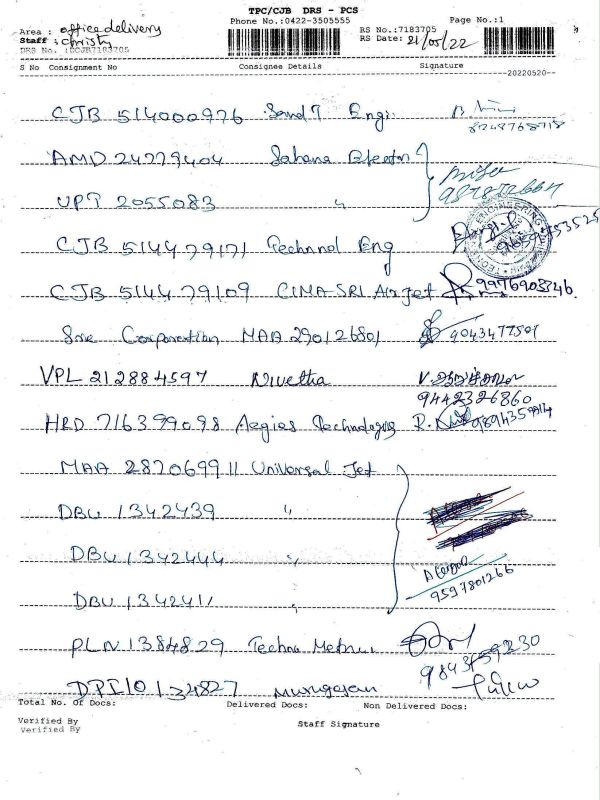 TPC/CJB DRS - PCS
Phone No.:0422-3505555 Page No.:1
Area : office delivery RS No.:7183705
Staff : christy RS Date: 21/05/22
DRS No. :DCJB7183705
S No Consignment No Consignee Details Signature
20220520
CJB 514000976 Engi
AMD 24779404 Sahana
UPT 2055083 "
CJB 514479171 Technol Eng
CJB 514479109 CIMA SRI Air Jet 9976903746.
Sree Corporation MAA 290126801 9043477507
VPL 212884597 Nivetha
9442326860
HRD 716399098 Aegies Technologies R.
MAA 287069911 Universal Jet
DBU 1342439 "
DBU 1342444 "
DBU 1342411 "
9597801266
PLN 1384829 Techno
DPI 10134827 Murugesan
Total No. Of Docs: Delivered Docs: Non Delivered Docs:
Verified By Staff Signature
Verified By